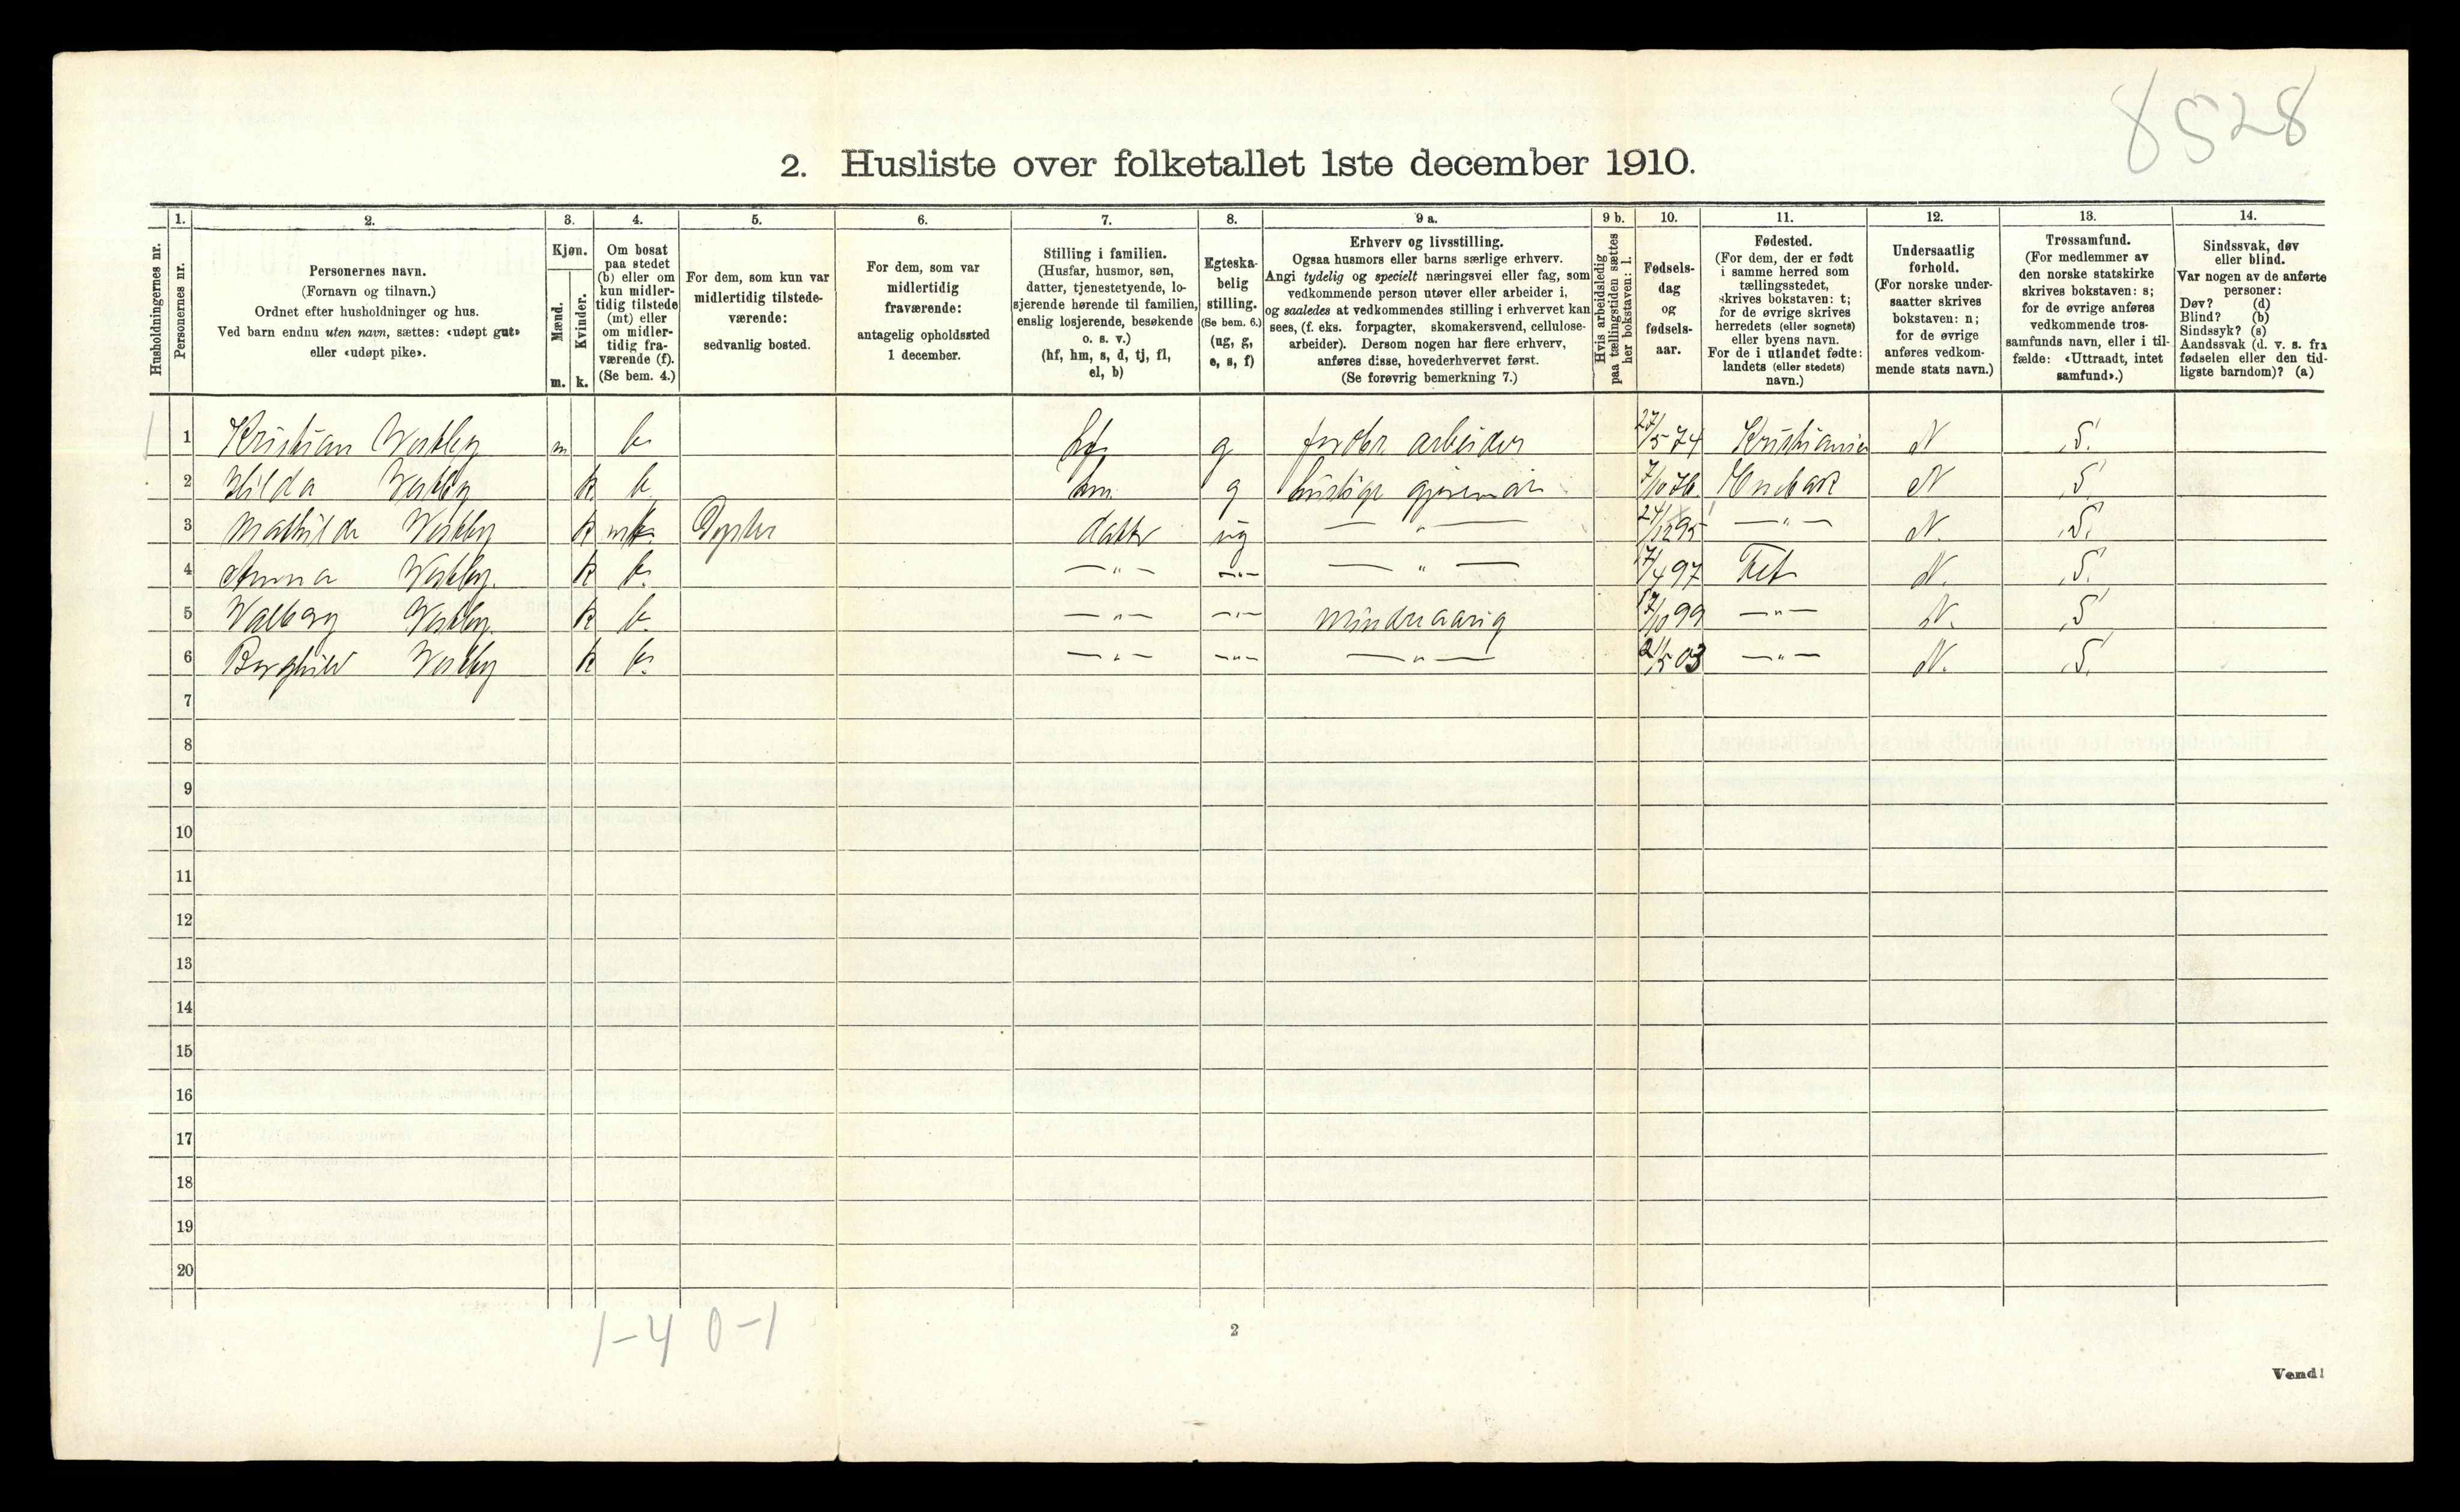 8528
2. Husliste over folketallet 1ste december 1910.
1. 2. 3. 4. 5. 6. 7. 8. 9 a. 9 b. 10. 11. 12. 13. 14.
Husholdningernes nr.
Personernes nr.
Personernes navn.
(Fornavn og tilnavn.)
Ordnet efter husholdninger og hus.
Ved barn endnu uten navn, sættes: «udøpt gut»
eller «udøpt pike».
Kjøn.
Mænd.
Kvinder.
m. k.
Om bosat
paa stedet
(b) eller om
kun midler-
tidig tilstede
(mt) eller
om midler-
tidig fra-
værende (f).
(Se bem. 4.)
For dem, som kun var
midlertidig tilstede-
værende:
sedvanlig bosted.
For dem, som var
midlertidig
fraværende:
antagelig opholdssted
1 december.
Stilling i familien.
(Husfar, husmor, søn,
datter, tjenestetyende, lo-
sjerende hørende til familien,
enslig losjerende, besøkende
o. s. v.)
(hf, hm, s, d, tj, fl,
el, b)
Egteska-
belig
stilling.
(Se bem. 6.)
(ug, g,
e, s, f)
Erhverv og livsstilling.
Ogsaa husmors eller barns særlige erhverv.
Angi tydelig og specielt næringsvei eller fag, som
vedkommende person utøver eller arbeider i,
og saaledes at vedkommendes stilling i erhvervet kan
sees, (f. eks. forpagter, skomakersvend, cellulose-
arbeider). Dersom nogen har flere erhverv,
anføres disse, hovederhvervet først.
(Se forøvrig bemerkning 7.)
Hvis arbeidsledig
paa tællingstiden sættes
her bokstaven: l.
Fødsels-
dag
og
fødsels-
aar.
Fødested.
(For dem, der er født
i samme herred som
tællingsstedet,
skrives bokstaven: t;
for de øvrige skrives
herredets (eller sognets)
eller byens navn.
For de i utlandet fødte:
landets (eller stedets)
navn.)
Undersaatlig
forhold.
(For norske under-
saatter skrives
bokstaven: n;
for de øvrige
anføres vedkom-
mende stats navn.)
Trossamfund.
(For medlemmer av
den norske statskirke
skrives bokstaven: s;
for de øvrige anføres
vedkommende tros-
samfunds navn, eller i til-
fælde: «Uttraadt, intet
samfund».)
Sindssvak, døv
eller blind.
Var nogen av de anførte
personer:
Døv? (d)
Blind? (b)
Sindssyk? (s)
Aandssvak (d. v. s. fra
fødselen eller den tid-
ligste barndom)? (a)
1 Kristian Vestby m b. hf. g arbeider 27/5 74 Kristiania N S.
2 Hilda Vestby k b hm. g 7/10 76 Enebak N S.
3 Mathilde Vestby k mt datter ug — " — 24/12 95 — " — N. S.
4 Anna Vestby. k b. — " — — " — — " — 7/4 97 Fet N. S.
5 Valborg Vestby. k b. — " — — " — Mindreaarig 17/10 99 — " — N. S.
6 Borghild Vestby k b. — " — — " — — " — 21/5 03 — " — N. S.
7
8
9
10
11
12
13
14
15
16
17
18
19
20
1-4 0-1
2
Vend!